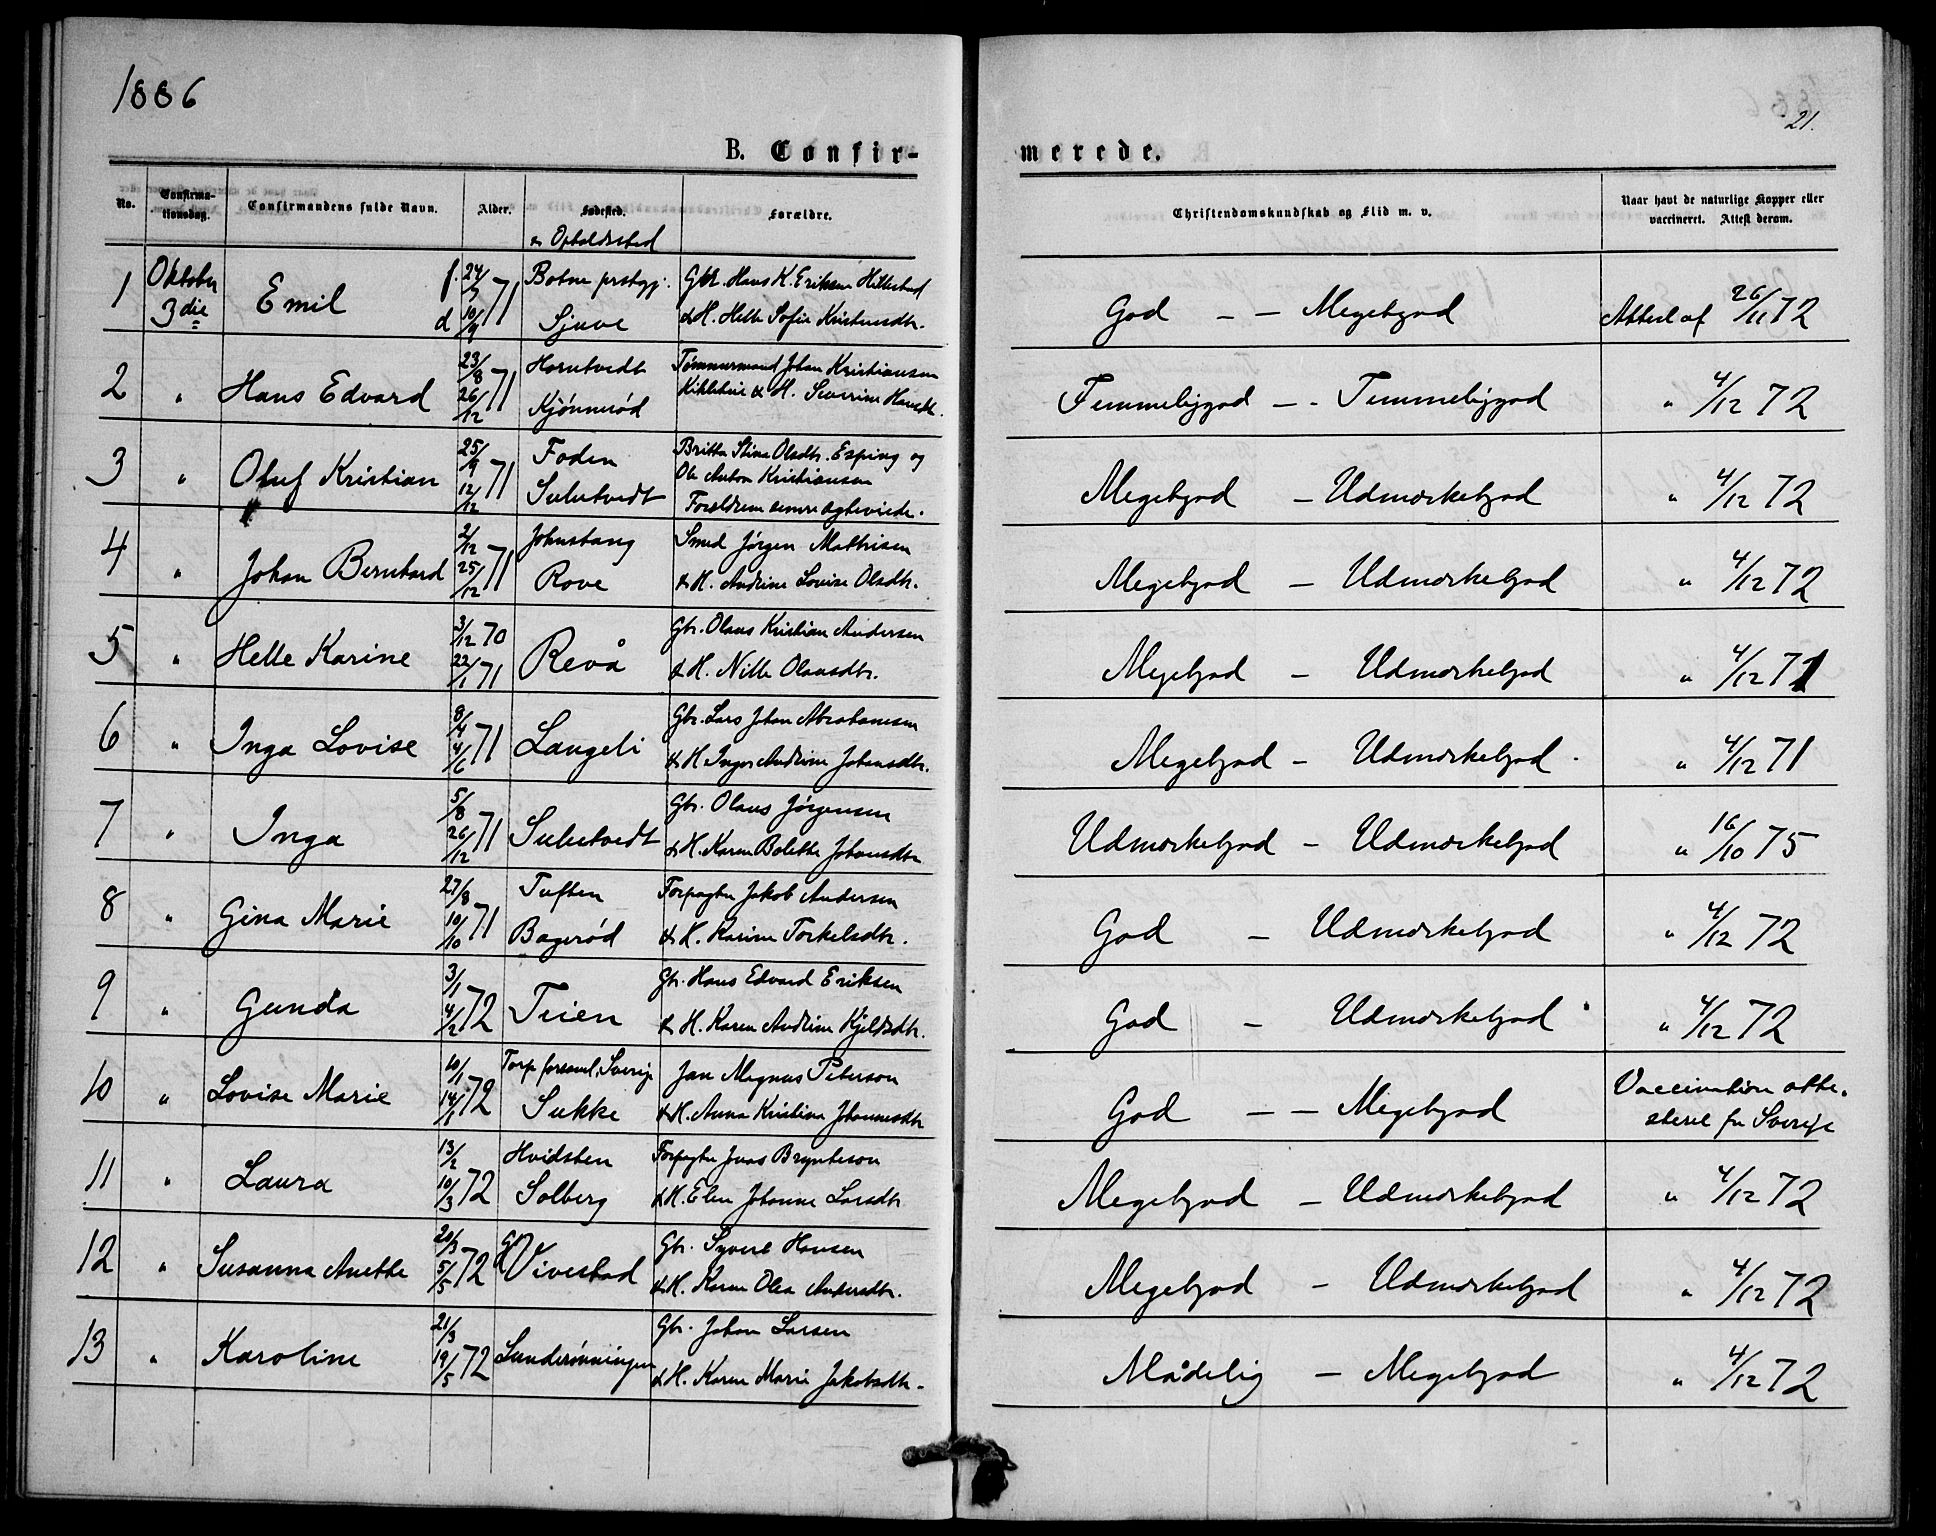 1886
21.
B. Confir-
merede.
No.
Confirma-
tionsdag.
Confirmandens fulde Navn.
Alder.
Fødested.
& Opholdssted
Forældre.
Christendomskundskab og Flid m. v.
Naar havt de naturlige Kopper eller
vaccineret. Attest derom.
1 Oktober Emil f. 24/7 71 Botne prstgj. Gbr. Hans K. Eriksen Hillestad
3die d 10/9 Sjuve & H. Helle Sofie Kristensdtr.
God - - Megetgod Attest af 26/11 72
2 " Hans Edvard 23/8 71 Horntvedt Tømmermand Johan Kristiansen
26/12 Kjønnerød & H. Severine Hansdt.
Temmeliggod - - Temmeliggod " 4/12 72
3 " Oluf Kristian 25/9 71 Foden Britta Stina Olsdtr. Esping og
12/12 Sulutvedt Ole Anton Kristiansen
Forældrene senere ægteviede.
Megetgod - Udmærketgod " 4/12 72
4 " Johan Bernhard 2/12 71 Smed Jørgen Mathisen
25/12 Rove & H. Andrine Lovise Olsdtr.
Megetgod - Udmærketgod " 4/12 72
5 " Helle Karine 3/12 70 Revå Gbr. Olaus Kristian Andersen
22/1 71 & H. Nille Olausdtr.
Megetgod - Udmærketgod " 4/12 71
6 " Inga Lovise 8/4 71 Langeli Gbr. Lars Johan Abrahamsen
4/6 & H. Inger Andrine Johansdtr.
Megetgod - Udmærketgod. " 4/12 71
7 " Inga 5/8 71 Sulutvedt Gbr. Olaus Jørgensen
26/12 & H. Karen Bolette Johansdtr
Udmærketgod - Udmærketgod " 16/10 75
8 " Gina Marie 27/8 71 Tuften Forpagter Jakob Andersen
10/10 Bagerød & H. Karine Torkelsdtr.
God - Udmærketgod " 4/12 72
9 " Gunda 3/1 72 Teien Gbr. Hans Edvard Eriksen
4/2 & H. Karen Andrine Kjeldsdtr.
God - Udmærketgod " 4/12 72
10 " Lovise Marie 10/1 72 Torp forsaml, Sverige Jan Magnus Peterson
14/1 Sukke & H. Anna Kristina Johannesdtr
God - - Megetgod Vaccination atte-
steret fra Sverige
11 " Laura 13/2 72 Hvidsten Forpagter Jonas Brynteson
10/3 Solberg & H. Elen Johanne Larsdtr
Megetgod - Udmærketgod " 4/12 72
12 " Susanna Anette 20/3 72 Vivestad Gbr. Syvert Hansen
5/5 & H. Karen Olea Andersdtr.
Megetgod - Udmærketgod " 4/12 72
13 " Karoline 21/3 72 Lunderønningen Gbr. Johan Larsen
19/5 & H. Karen Marie Jakobsdtr.
Mådelig - Megetgod " 4/12 72